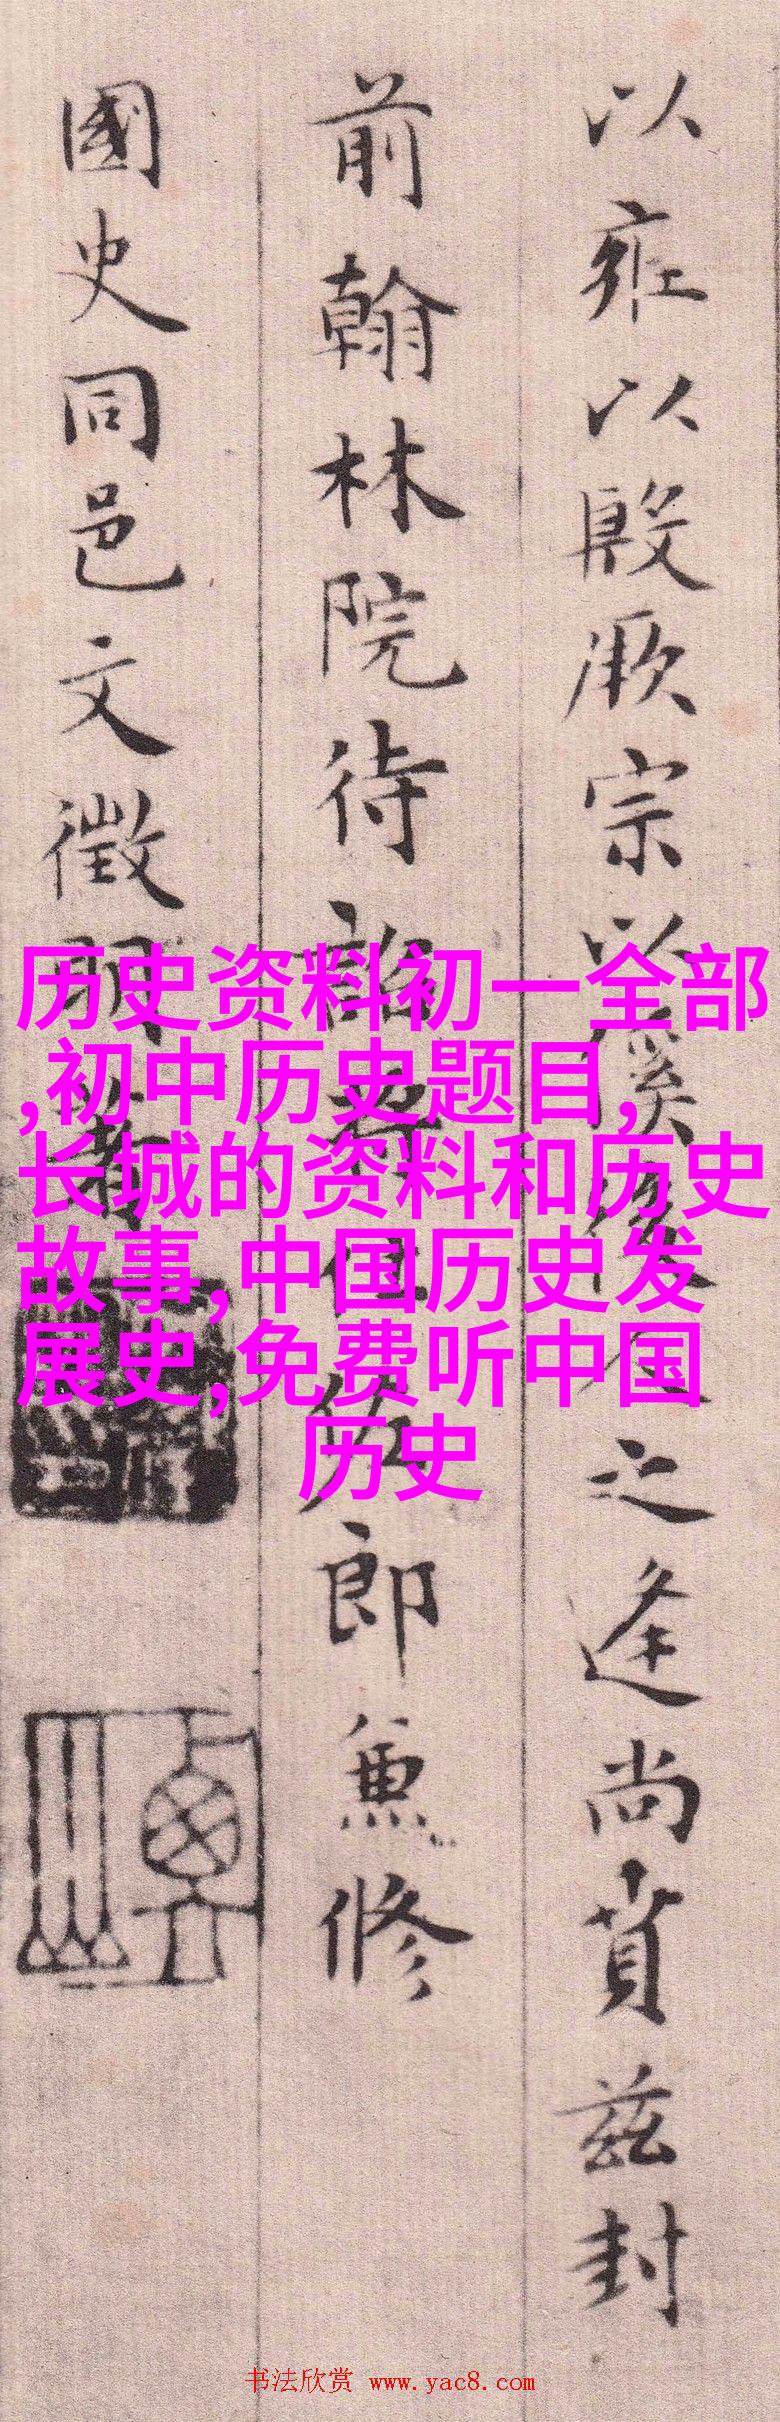 以雍以殷厥宗以溪後人之逢尚賁茲封
前翰林院待詔將仕佐郎兼修
國史同邑文徵明著
历史资料初一全部
,初中历史题目,
长城的资料和历史
故事,中国历史发
展史,免费听中国
历史
书法欣赏 www.yac8.com